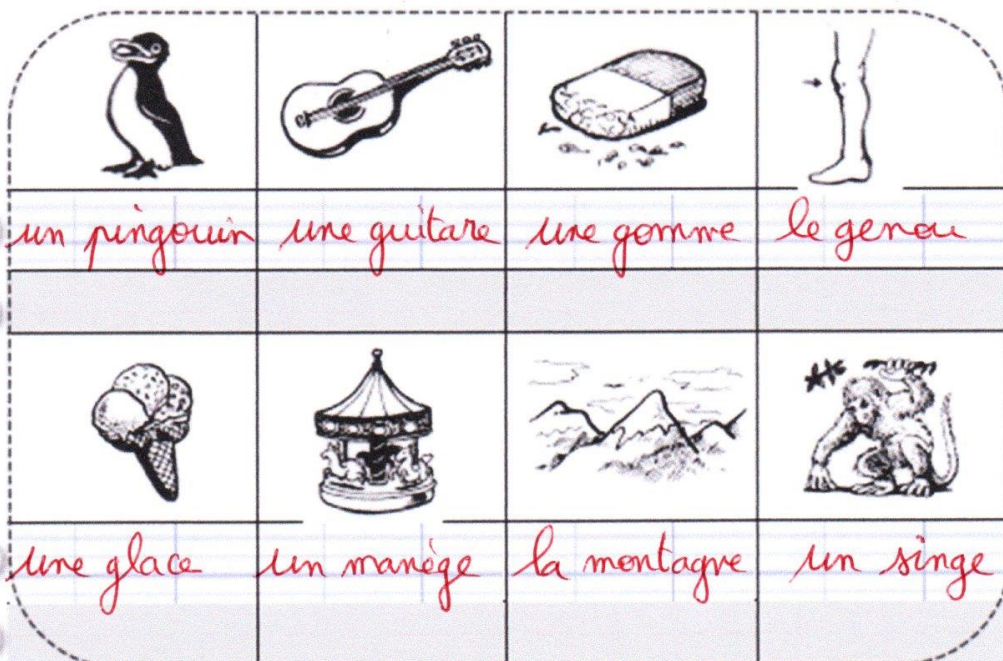 un pingouin une guitare une gomme le genou
une glace un manège la montagne un singe